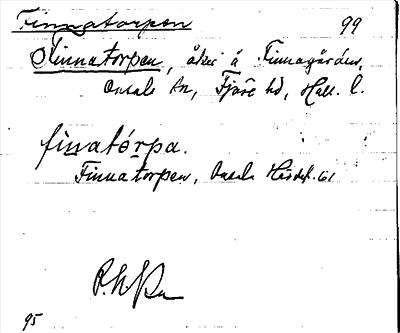 Finnatorpen 99
Finnatorpen, åker å Finnagården,
Onsala sn, Fjäre hd, Hall. l.
finatórpa.
Finnatorpen, Onsala
95